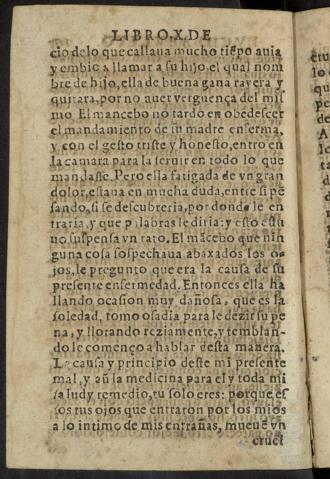 LIBRO.X.DE
cio de lo que callaua mucho tiẽpo auia
y embio a llamar a su hijo, el qual nom
bre de hijo, ella de buena gana rayera y
quitara, por no auer verguença del mis
mo. El mancebo no tardo en obedescer
el mandamiento de su madre enferma,
y con el gesto triste y honesto, entro en
la camara para la seruir en todo lo que
mandasse. Pero ella fatigada de vn gran
dolor, estaua en mucha duda, entre si pẽ
sando, si se descubreria, por donde le en
traria, y que palabras le diria: y esto estu
uo suspensa vn rato. El mãcebo que nin
guna cosa sospechaua abaxados los o-
jos, le pregunto que era la causa de su
presente enfermedad. Entonces ella ha
llando ocasion muy dañosa, que es la
soledad, tomo osadia para le dezir su pe
na, y llorando reziamente, y temblan-
do le começo a hablar desta manera.
La causa y principio deste mi presente
mal, y aũ la medicina para el y toda mi
salud y remedio, tu solo eres: porque es
sos tus ojos que entraron por los mios
a lo intimo de mis entrañas, mueuẽ vn
cruel